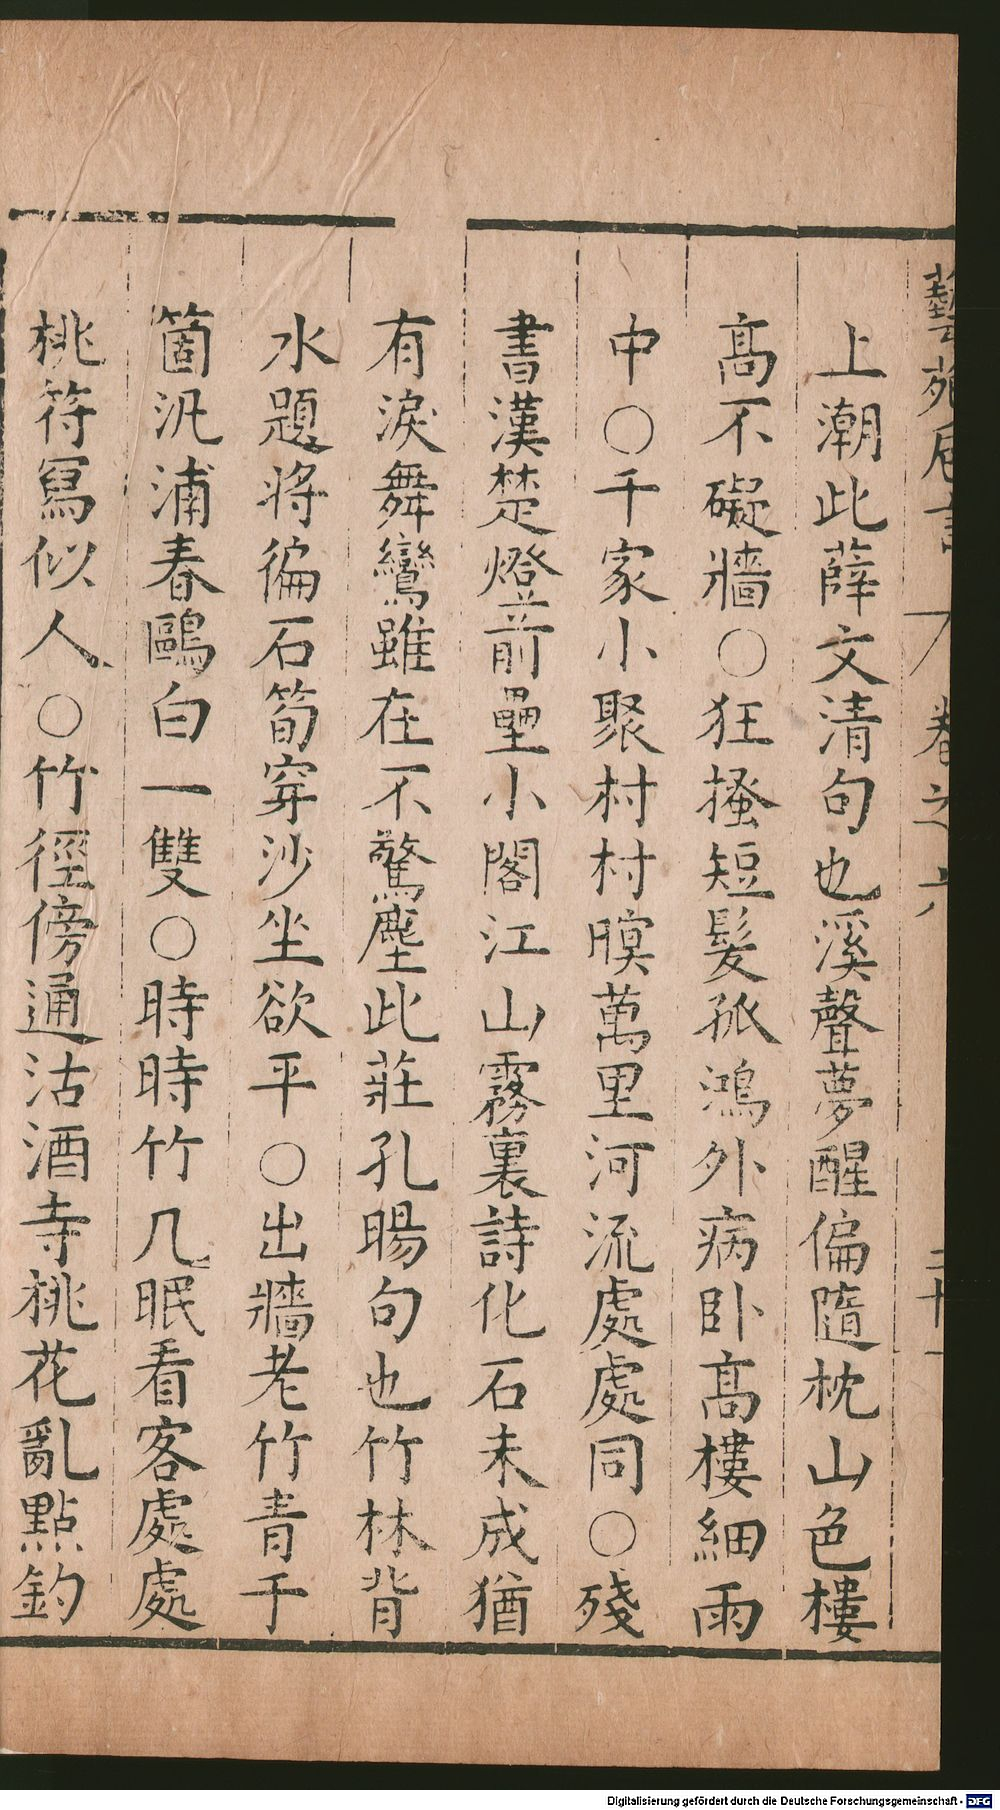 藝苑卮言 卷之六 二十一
上潮此薛文清句也溪聲夢醒偏隨枕山色樓
高不礙牆○狂搔短髮孤鴻外病卧高樓細雨
中○千家小聚村村暝萬里河流處處同○殘
書漢楚燈前壘小閣江山霧裏詩化石未成猶
有淚舞鸞雖在不驚塵此莊孔暘句也竹林背
水題將徧石筍穿沙坐欲平○出牆老竹青千
箇汎浦春鷗白一雙○時時竹几眠看客處處
桃符寫似人○竹徑傍通沽酒寺桃花亂點釣
Digitalisierung gefördert durch die Deutsche Forschungsgemeinschaft - DFG